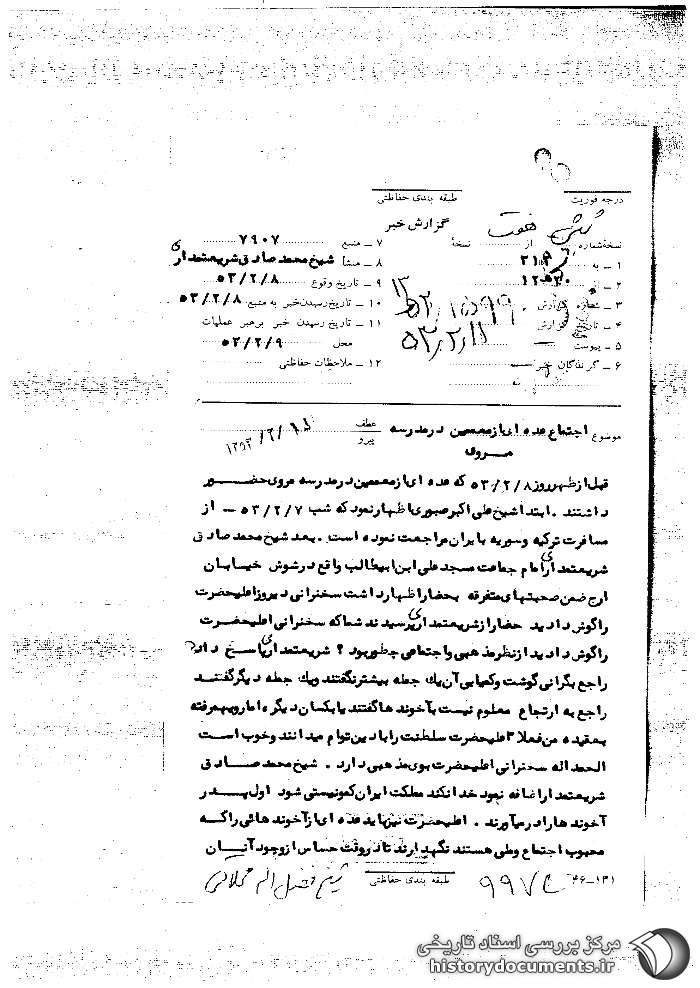 درجه فوریت
طبقه بندی حفاظتی
گزارش خبر
نسخه شماره از نسخه
۱ ـ به ۳۱۲
۲ ـ از
۳ ـ شماره گزارش
۴ ـ تاریخ گزارش ۵۳/۲/۱۱
۵ ـ پیوست
۶ ـ گیرندگان خبر
۷ ـ منبع ۷۹۰۷
۸ ـ منشأ شیخ محمد صادق شریعتمداری
۹ ـ تاریخ وقوع ۵۳/۲/۸
۱۰ ـ تاریخ رسیدن خبر به منبع ۵۳/۲/۸
۱۱ ـ تاریخ رسیدن خبر برهبر عملیات
محل ۵۳/۲/۹
۱۲ ـ ملاحظات حفاظتی
موضوع اجتماع عده ای از معممین در مدرسه
مروی
عطف
پیرو
قبل از ظهر روز ۵۳/۲/۸ که عده ای از معممین در مدرسه مروی حضور
داشتند . ابتدا شیخ علی اکبر صبوری اظهار نمود که شب ۵۳/۲/۷ ـ از
مسافرت ترکیه و سوریه با یران مراجعت نموده است . بعد شیخ محمد صادق
شریعتمداری امام جماعت مسجد علی ابن ابیطالب واقع در شوش خیابان
ارج ضمن صحبتهای متفرقه بحضار اظهار داشت سخنرانی دیروز اعلیحضرت
را گوش دادید حضار از شریعتمداری پرسیدند شما که سخنرانی اعلیحضرت
را گوش دادید از نظر مذهبی و اجتماعی چطور بود ؟ شریعتمداری پاسخ داد
راجع بگرانی گوشت و کمیابی آن یك جمله بیشتر نگفتند و یك جمله دیگر گفتند
راجع به ارتجاع معلوم نیست بآخوند ها گفتند یا بکسان دیگر ه اما رویهمرفته
بعقیده من فعلا اعلیحضرت سلطنت را با دین توام میدانند و خوب است
الحمد اله سخنرانی اعلیحضرت بوی مذهبی دارد . شیخ محمد صادق
شریعتمدار اضافه نمود خدا نکند مملکت ایران کمونیستی شود اول پدر
آخوند ها را در میآورند . اعلیحضرت نیز باید عده ای از آخوند هائی را که
محبوب اجتماع و ملی هستند نگهدارند تا در وقت حساس از وجود آنان
طبقه بندی حفاظتی
۴۶-۱۳۱
شیخ فضل اله محلاتی
مرکز بررسی اسناد تاریخی
historydocuments.ir